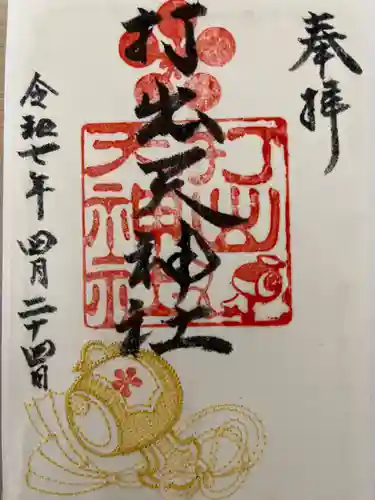 奉拝
打出天神社
打出
天神社
令和七年四月二十四日